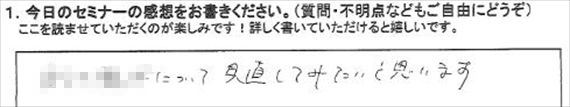 1. 今日のセミナーの感想をお書きください。（質問・不明点などもご自由にどうぞ）
ここを読ませていただくのが楽しみです！詳しく書いていただけると嬉しいです。
について見直してみたいと思います